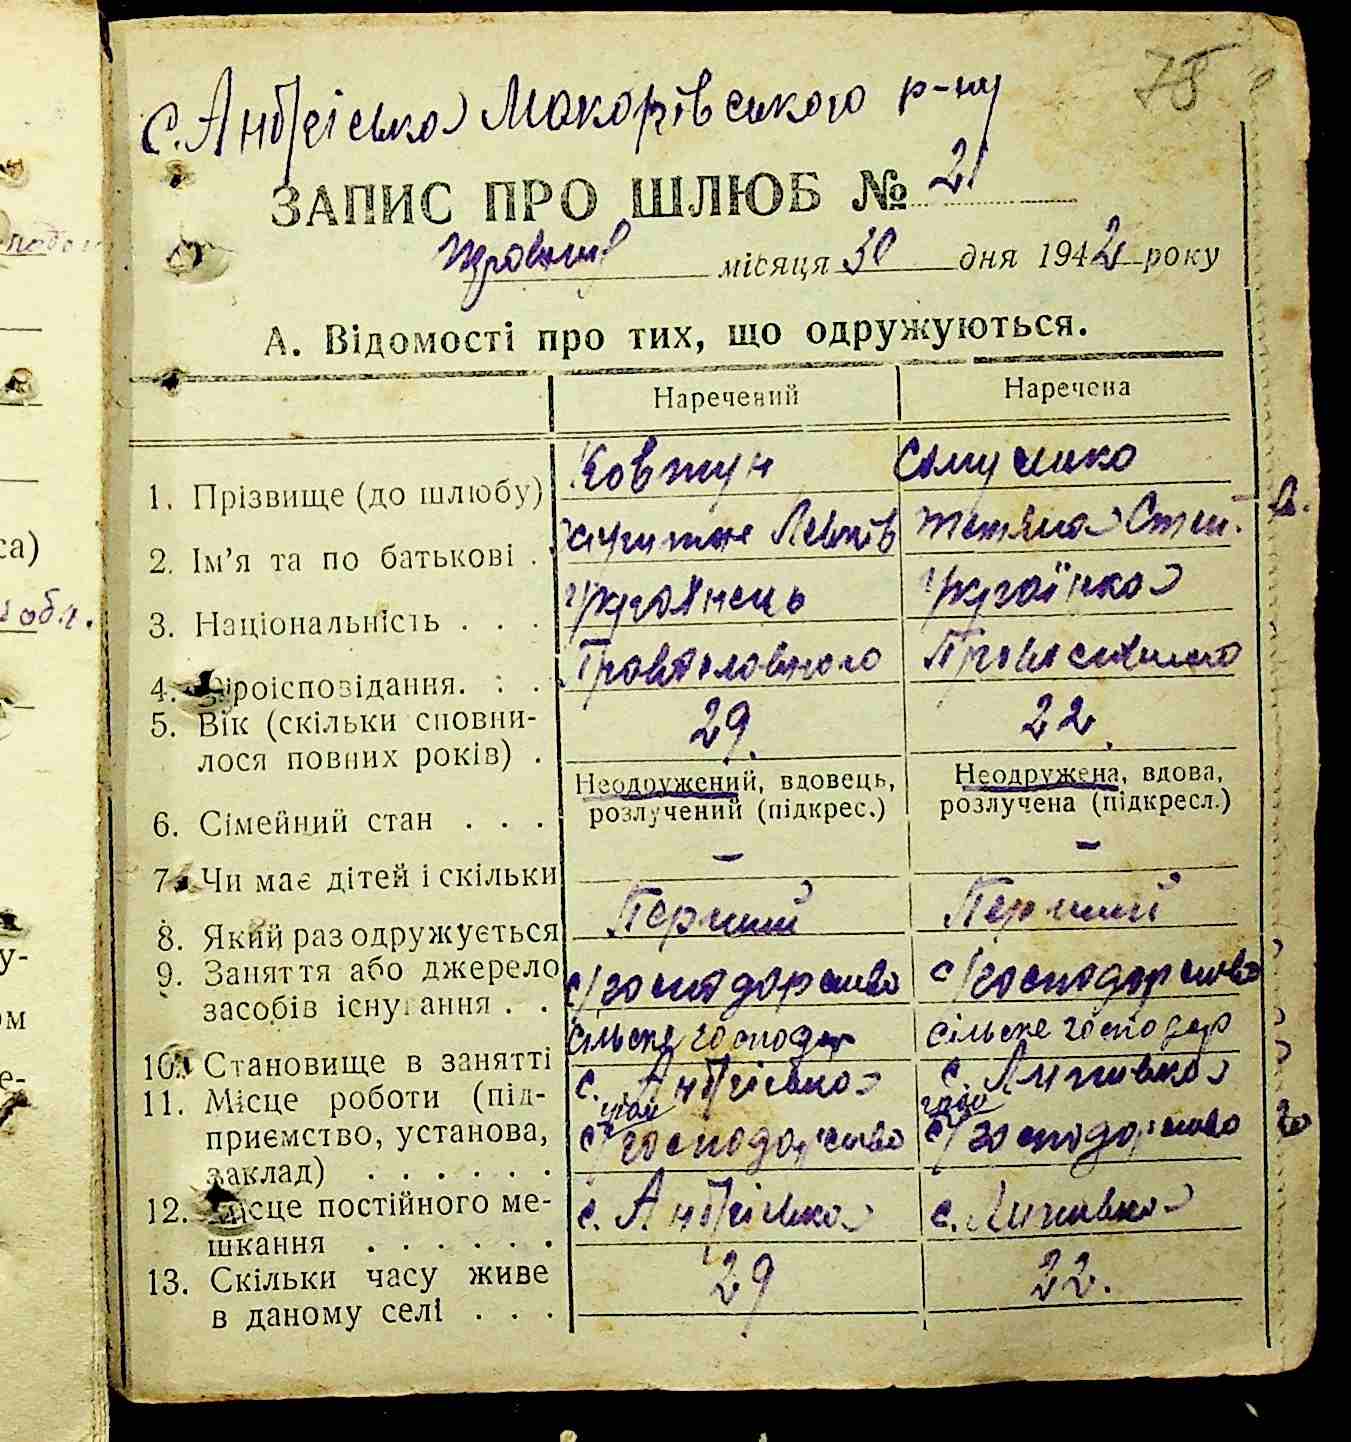 75
с. Андріївка Макарівського р-ну
ЗАПИС ПРО ШЛЮБ № 21
місяця 30 дня 1942 року
А. Відомості про тих, що одружуються.
Наречений Наречена
1. Прізвище (до шлюбу) Ковтун
2. Ім'я та по батькові . Тетяна Степ.
3. Національність . . . Українець Українка
4. Віроісповідання. . . Православного Православного
5. Вік (скільки сповни-
лося повних років) . 29. 22.
Неодружений, вдовець, Неодружена, вдова,
6. Сімейний стан . . . розлучений (підкрес.) розлучена (підкресл.)
7. Чи має дітей і скільки – –
8. Який раз одружується Перший Перший
9. Заняття або джерело
засобів існування . . с/господарство с/господарство
10. Становище в занятті сільске господар сільске господар
11. Місце роботи (під- с. Андріївка с. Липівка
приємство, установа, с/господарство с/господарство
заклад) . . . . . .
12. Місце постійного ме- с. Андріївка с. Липівка
шкання . . . . . .
13. Скільки часу живе 29 22.
в даному селі . . .
са)
обл.
у-
ом
е-